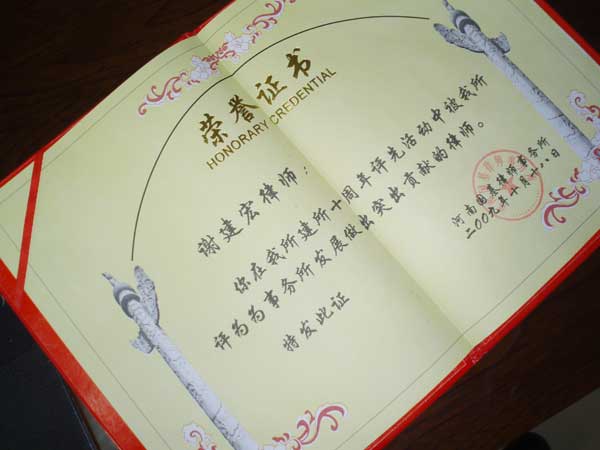 荣誉证书
HONORARY CREDENTIAL
谢建宏律师:
你在我所建所十周年评先活动中被我所
评为为事务所发展做出突出贡献的律师。
特发此证
河南国基律师事务所